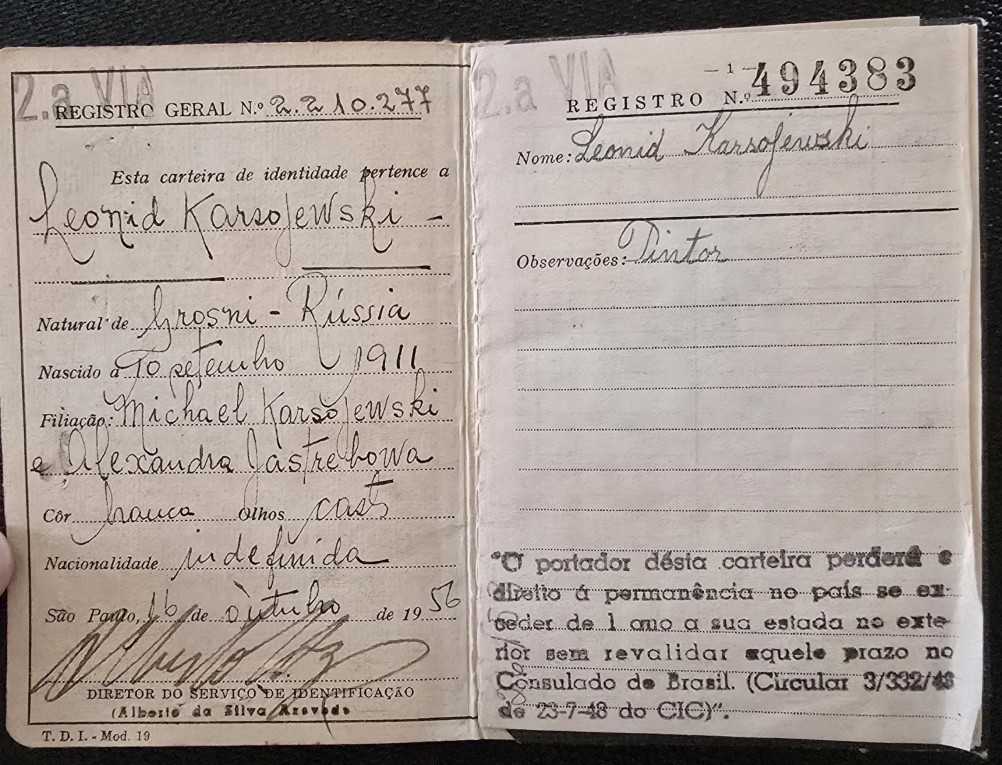 2.a VIA
REGISTRO GERAL N.º 2.210.277
Esta carteira de identidade pertence a
Leonid Karsojewski -
Natural de Grosni - Rússia
Nascido a 10 setembro 1911
Filiação: Michael Karsojewski
e Alexandra Jastrebowa
Côr branca olhos casts
Nacionalidade indefinida
São Paulo, 16 de outubro de 1956
DIRETOR DO SERVIÇO DE IDENTIFICAÇÃO
(Alberto da Silva Azevedo
T. D. I. - Mod. 19
2.a VIA
- 1 -
REGISTRO N.º 494383
Nome: Leonid Karsojewski
Observações: Pintor
"O portador désta carteira perderá o
direito á permanência no país se ex-
ceder de 1 ano a sua estada no exte-
rior sem revalidar aquele prazo no
Consulado do Brasil. (Circular 3/332/48
de 23-7-48 do CIC)".